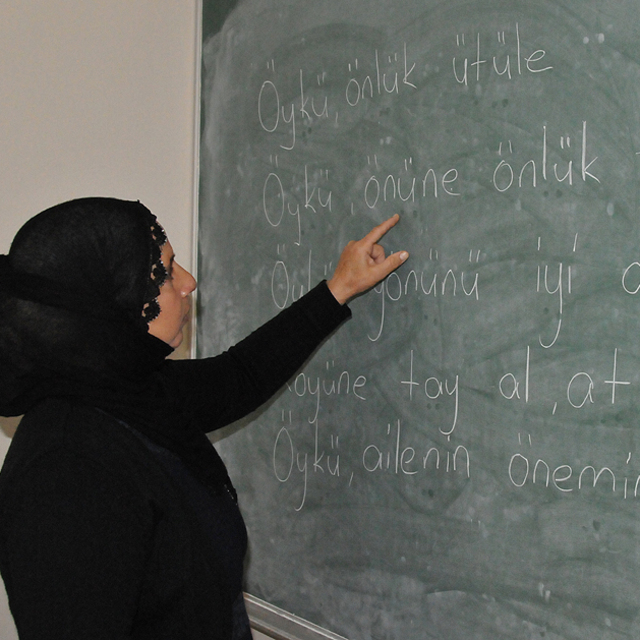 Öykü, önlük ütüle
Öykü önüne önlük
Öykü yönünü iyi
köyüne tay al, at
Öykü, ailenin önemin